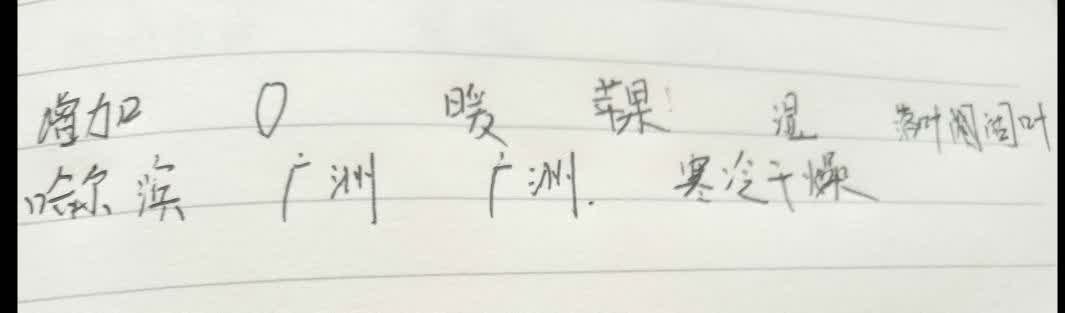 增加 0 暖 苹果 温 落叶阔叶
哈尔滨 广州 广州. 寒冷干燥